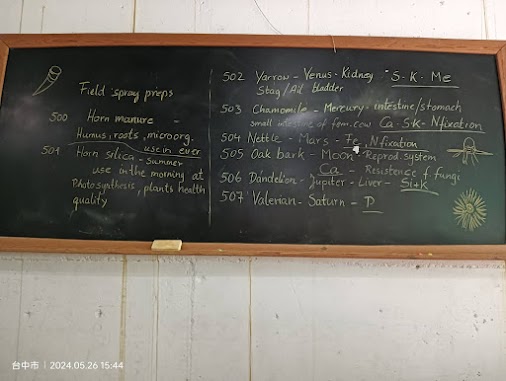 Field spray preps
500 Horn manure -
Humus, roots, microorg.
use in ever
501 Horn silica - summer
use in the morning at
Photosynthesis, plants health
quality
502 Yarrow - Venus - Kidney S-K-Me
Stag / bladder
503 Chamomile - Mercury - intestine/stomach
small intestine of fem. cow Ca-S-K-Nfixation
504 Nettle - Mars - Fe, N fixation
505 Oak bark - Moon - Reprod. system
Ca - Resistence f fungi
506 Dandelion - Jupiter - Liver - Si+K
507 Valerian - Saturn - P
台中市 | 2024.05.26 15:44